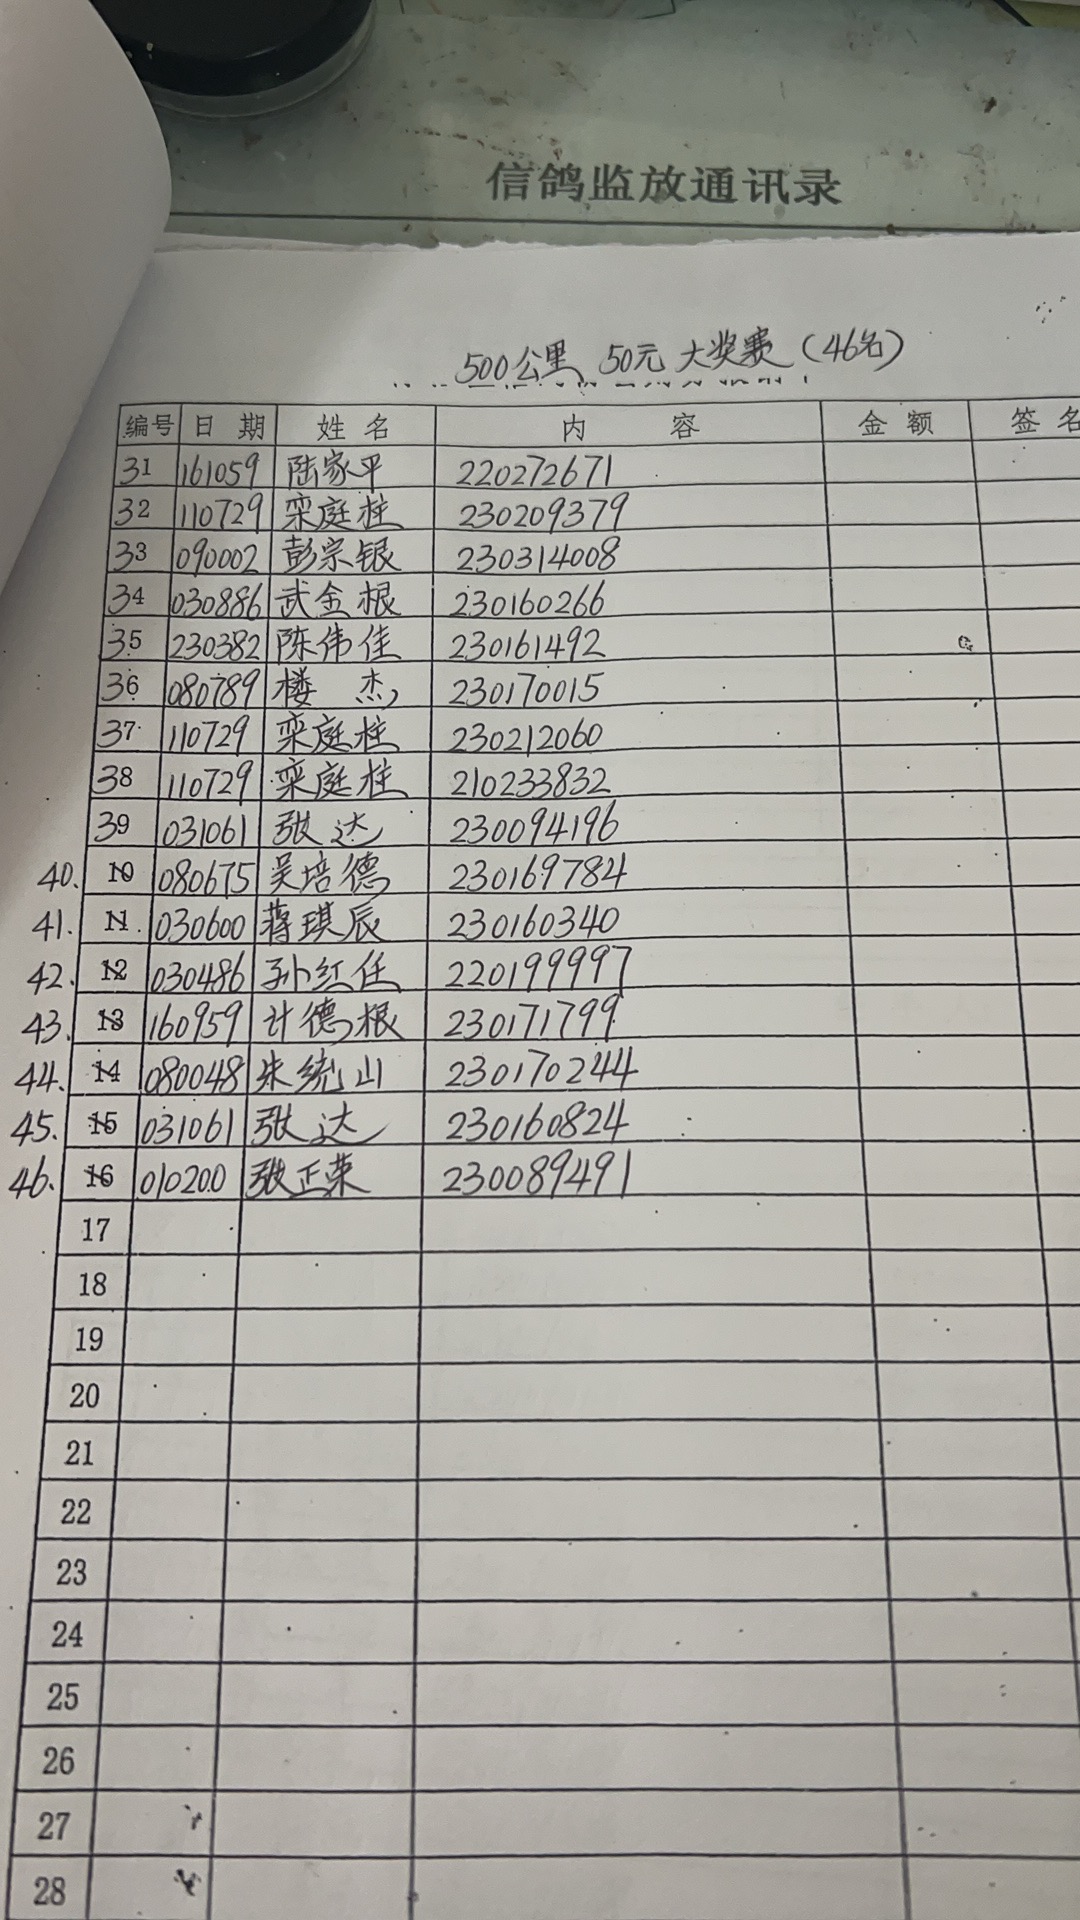 信鸽监放通讯录
500公里 50元 大奖赛（46名）
编号 日 期 姓 名 内 容 金 额 签 名
31 161059 陆家平 220272671
32 110729 栾庭柱 230209379
33 090002 彭宗银 230314008
34 030886 武金根 230160266
35 230382 陈伟佳 230161492
36 080789 楼 杰 230170015
37 110729 栾庭柱 230212060
38 110729 栾庭柱 210233832
39 031061 张达 230094196
40. 10 080675 吴培德 230169784
41. 11 030600 蒋琪辰 230160340
42. 12 030486 孙红任 220199997
43. 13 160959 计德根 230171799
44. 14 080048 朱统山 230170244
45. 15 031061 张达 230160824
46. 16 010200 张正荣 230089491
17
18
19
20
21
22
23
24
25
26
27
28